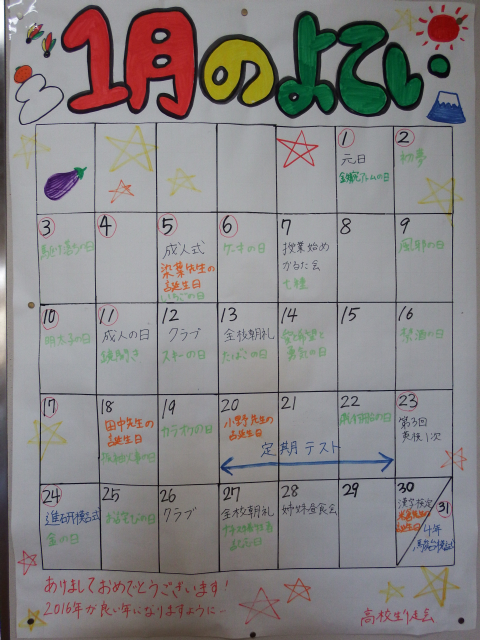 1月のよてい
1
元日
鉄腕アトムの日
2
初夢
3
4
5
成人式
染葉先生の
誕生日
いちごの日
6
ケーキの日
7
授業始め
かるた会
七種
8
9
風邪の日
10
明太子の日
11
成人の日
鏡開き
12
クラブ
スキーの日
13
全校朝礼
たばこの日
14
愛と希望と
勇気の日
15
16
禁酒の日
17
18
田中先生の
誕生日
19
カラオケの日
20
小野先生の
誕生日
21
22
23
第3回
英検1次
定期テスト
24
進研模試
金の日
25
26
クラブ
27
全校朝礼
28
姉妹会食会
29
30
漢字検定
誕生日
31
4年
あけましておめでとうございます!
2016年が良い年になりますように…
高校生徒会